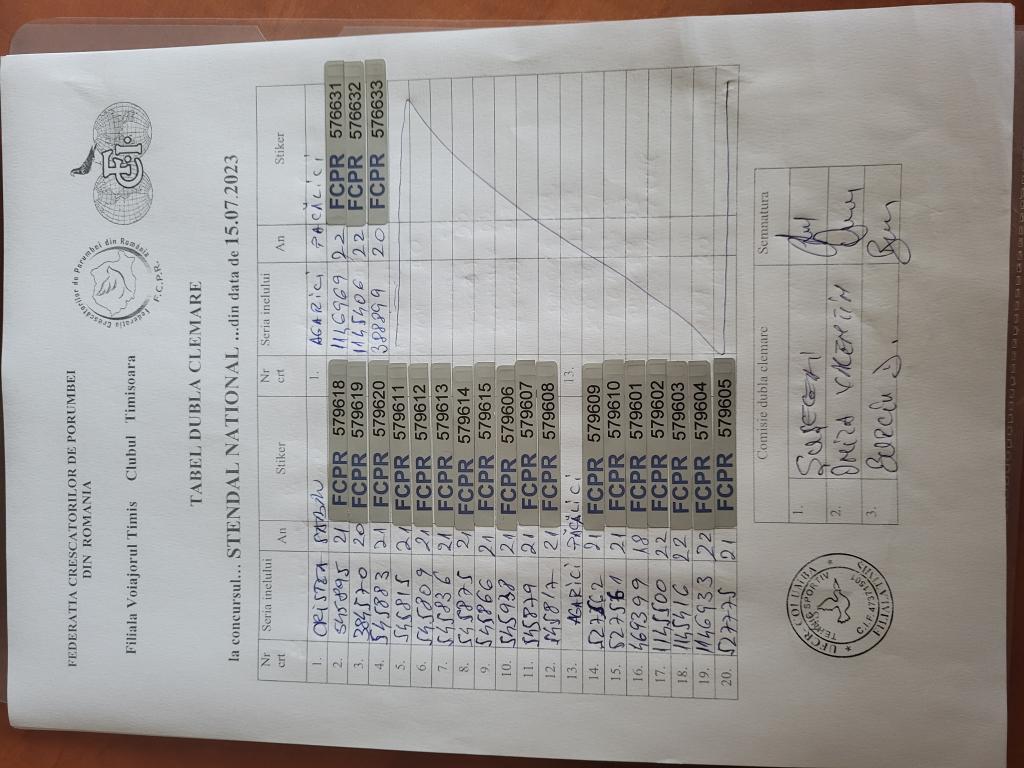 FEDERATIA CRESCATORILOR DE PORUMBEI
DIN ROMANIA
Filiala Voiajorul Timis Clubul Timisoara
Federatia Crescătorilor de Porumbei din România
F.C.P.R.
FCI
TABEL DUBLA CLEMARE
la concursul... STENDAL NATIONAL ...din data de 15.07.2023
Nr crt Seria inelului An Stiker Nr crt Seria inelului An Stiker
1. CRISTEA SABIN 1. AGARICI PACĂLICI
2. 545895 21 FCPR 579618 1146969 22 FCPR 576631
3. 384570 20 FCPR 579619 1145406 22 FCPR 576632
4. 545883 21 FCPR 579620 388899 20 FCPR 576633
5. 545815 21 FCPR 579611
6. 545809 21 FCPR 579612
7. 545836 21 FCPR 579613
8. 545875 21 FCPR 579614
9. 545866 21 FCPR 579615
10. 545938 21 FCPR 579606
11. 545879 21 FCPR 579607
12. 545817 21 FCPR 579608
13. AGARICI PĂCĂLICI 13.
14. 21 FCPR 579609
15. 527561 21 FCPR 579610
16. 469399 18 FCPR 579601
17. 1145500 22 FCPR 579602
18. 1145416 22 FCPR 579603
19. 1146933 22 FCPR 579604
20. 527775 21 FCPR 579605
Comisie dubla clemare Semnatura
1.
2. VALENTIN
3. D.
UFCR COLUMBA
TEMERESPORTIV
C.I.F.47327501
FILIALA TIMIS